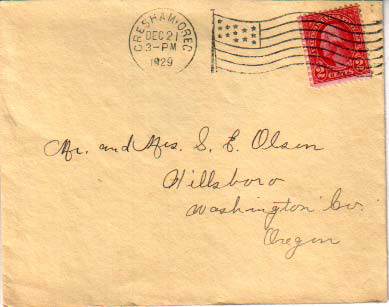 GRESHAM·OREG
DEC 21
3-PM
1929
2 CENTS 2
Mr. and Mrs. S. E. Olsen
Hillsboro
Washington Co.
Oregon